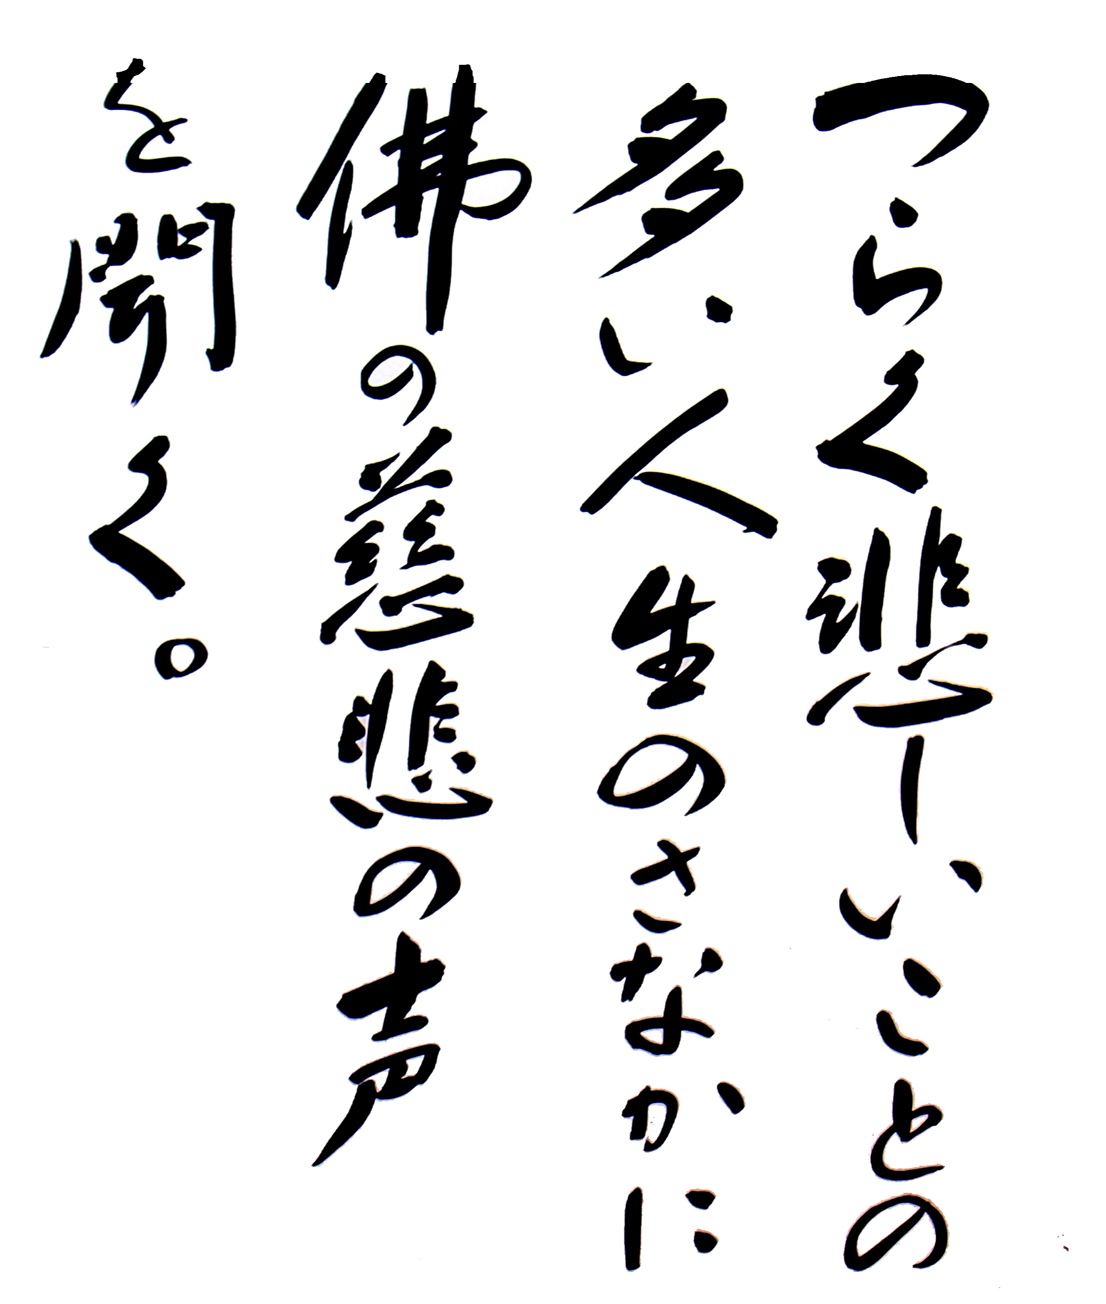 つらく悲しいことの
多い人生のさなかに
佛の慈悲の声
を聞く。